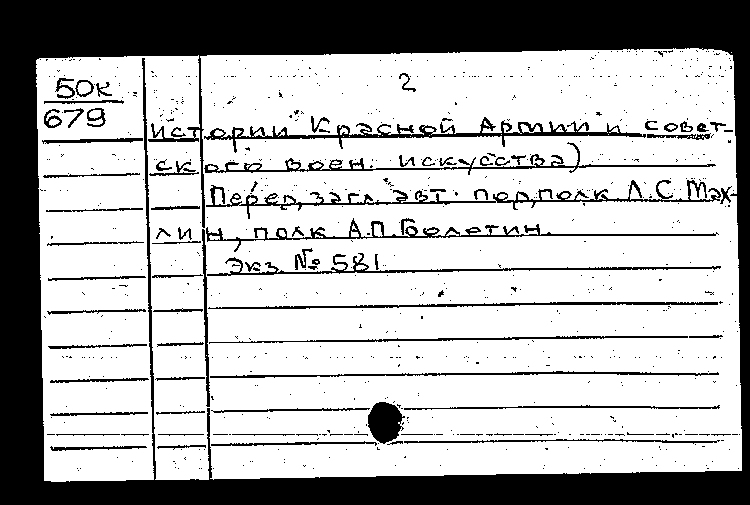 50к
679
2
истории Красной Армии и совет-
ского воен. искусства)
Перед загл. авт. подполк Л.С. Мах-
лин, полк А.П. Болотин.
Экз № 581